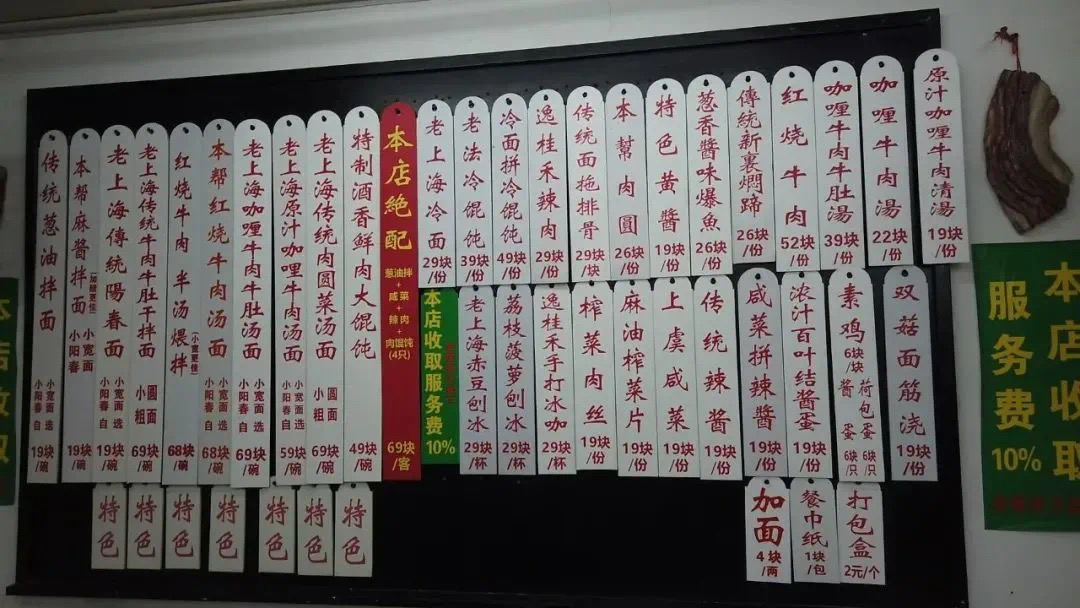 传统葱油拌面 小宽面 小阳春 自选 19块/碗
本帮麻酱拌面 小宽面 小阳春 19块/碗
老上海傳統陽春面 小宽面 小阳春 自选 19块/碗
老上海传统牛肉牛肚干拌面 小圆面 小粗 69块/碗
红烧牛肉半汤煨拌 (小宽更佳) 68块/碗
本帮红烧牛肉汤面 小宽面 小阳春 自选 68块/碗
老上海咖喱牛肉牛肚汤面 小宽面 小阳春 自选 69块/碗
老上海原汁咖喱牛肉汤面 小宽面 小阳春 自选 59块/碗
老上海传统肉圆菜汤面 小圆面 小粗 69块/碗
特制酒香鲜肉大馄饨 49块/碗
本店絶配 葱油拌+咸菜+辣肉+肉馄饨(4只) 69块/客
老上海冷面 29块/份
老法冷馄饨 39块/份
冷面拼冷馄饨 49块/份
逸桂禾辣肉 29块/份
传统面拖排骨 29块/块
本幫肉圓 26块/份
特色黄醬 19块/份
葱香醬味爆魚 26块/份
傳統新裏燜蹄 26块/份
红烧牛肉 52块/份
咖喱牛肉牛肚湯 39块/份
咖喱牛肉湯 22块/份
原汁咖喱牛肉清湯 19块/份
本店收取服务费10%
老上海赤豆刨冰 29块/杯
荔枝菠萝刨冰 29块/杯
逸桂禾手打冰咖 29块/杯
榨菜肉丝 19块/份
麻油榨菜片 19块/份
上虞咸菜 19块/份
传统辣酱 19块/份
咸菜拼辣醬 19块/份
浓汁百叶结醬蛋 19块/份
素鸡 6块/块
醬蛋 6块/只
荷包蛋 6块/只
双菇面筋浇 19块/份
特色
特色
特色
特色
特色
特色
特色
加面 4块/两
餐巾纸 1块/包
打包盒 2元/个
本店收取
服务费
10%